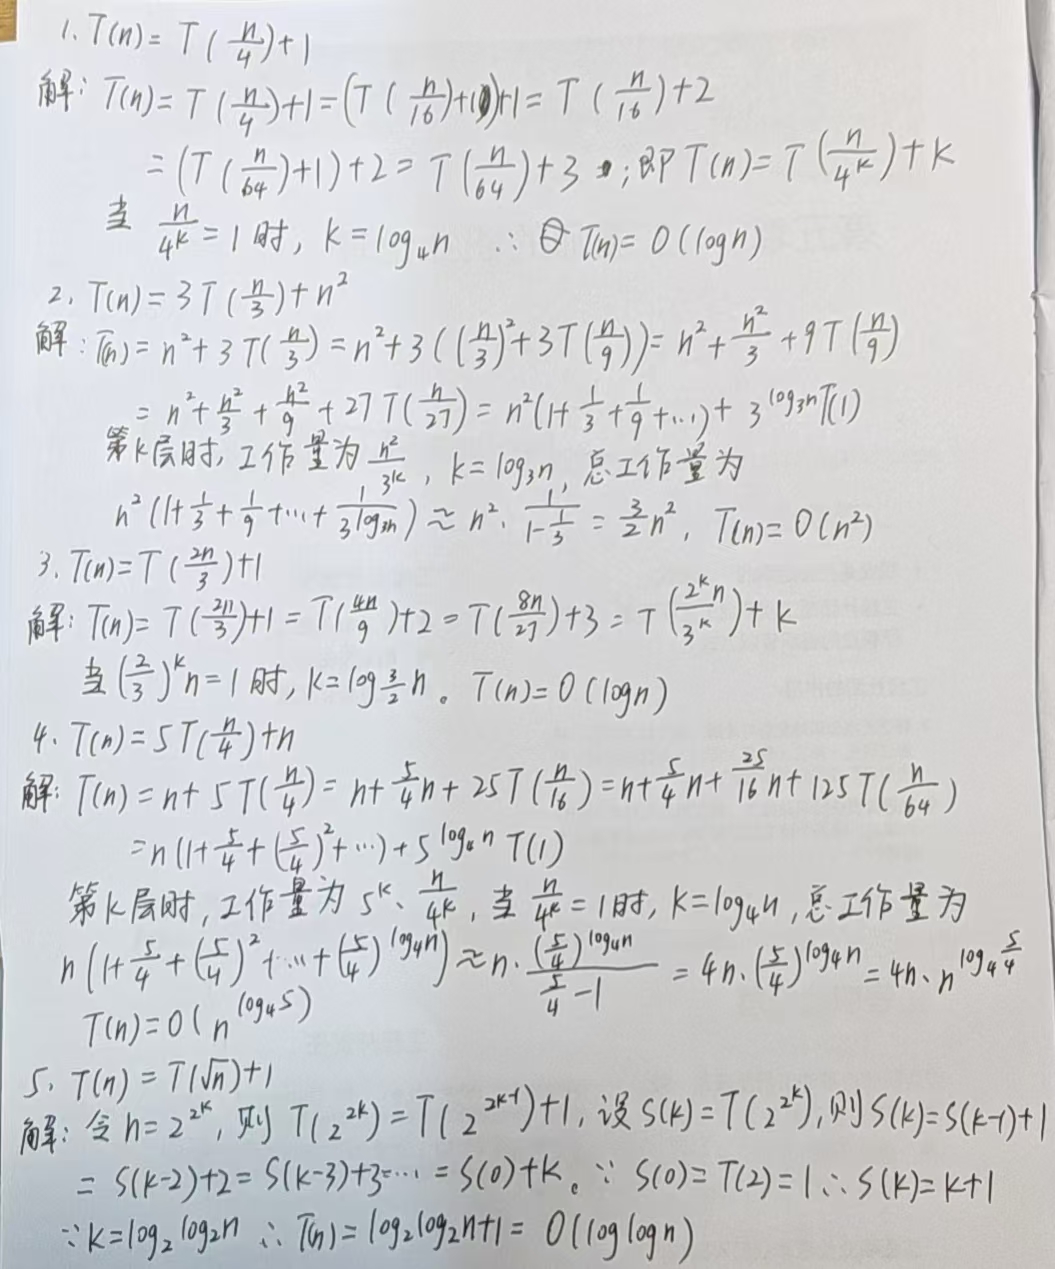 1. T(n) = T(n/4)+1
解: T(n) = T(n/4)+1 = (T(n/16)+1)+1 = T(n/16)+2
= (T(n/64)+1)+2 = T(n/64)+3 ; 即 T(n) = T(n/4^k)+k
当 n/4^k = 1 时, k = log₄n ∴ T(n) = O(logn)
2. T(n) = 3T(n/3)+n²
解: T(n) = n²+3T(n/3) = n²+3((n/3)²+3T(n/9)) = n²+n²/3+9T(n/9)
= n²+n²/3+n²/9+27T(n/27) = n²(1+1/3+1/9+...)+3^(log₃n)T(1)
第k层时, 工作量为 n²/3^k, k = log₃n, 总工作量为
n²(1+1/3+1/9+...+1/3^(log₃n)) ≈ n²·1/(1-1/3) = 3/2 n², T(n) = O(n²)
3. T(n) = T(2n/3)+1
解: T(n) = T(2n/3)+1 = T(4n/9)+2 = T(8n/27)+3 = T(2^k n/3^k)+k
当 (2/3)^k n = 1 时, k = log_(3/2) n。 T(n) = O(logn)
4. T(n) = 5T(n/4)+n
解: T(n) = n+5T(n/4) = n+5/4 n+25T(n/16) = n+5/4 n+25/16 n+125T(n/64)
= n(1+5/4+(5/4)²+...)+5^(log₄n) T(1)
第k层时, 工作量为 5^k·n/4^k, 当 n/4^k = 1时, k = log₄n, 总工作量为
n(1+5/4+(5/4)²+...+(5/4)^(log₄n)) ≈ n·(5/4)^(log₄n)/(5/4-1) = 4n·(5/4)^(log₄n) = 4n·n^(log₄ 5/4)
T(n) = O(n^(log₄5))
5. T(n) = T(√n)+1
解: 令 n = 2^(2^k), 则 T(2^(2^k)) = T(2^(2^(k-1)))+1, 设 S(k) = T(2^(2^k)), 则 S(k) = S(k-1)+1
= S(k-2)+2 = S(k-3)+3... = S(0)+k。 ∵ S(0) = T(2) = 1 ∴ S(k) = k+1
∵ k = log₂log₂n ∴ T(n) = log₂log₂n+1 = O(loglogn)